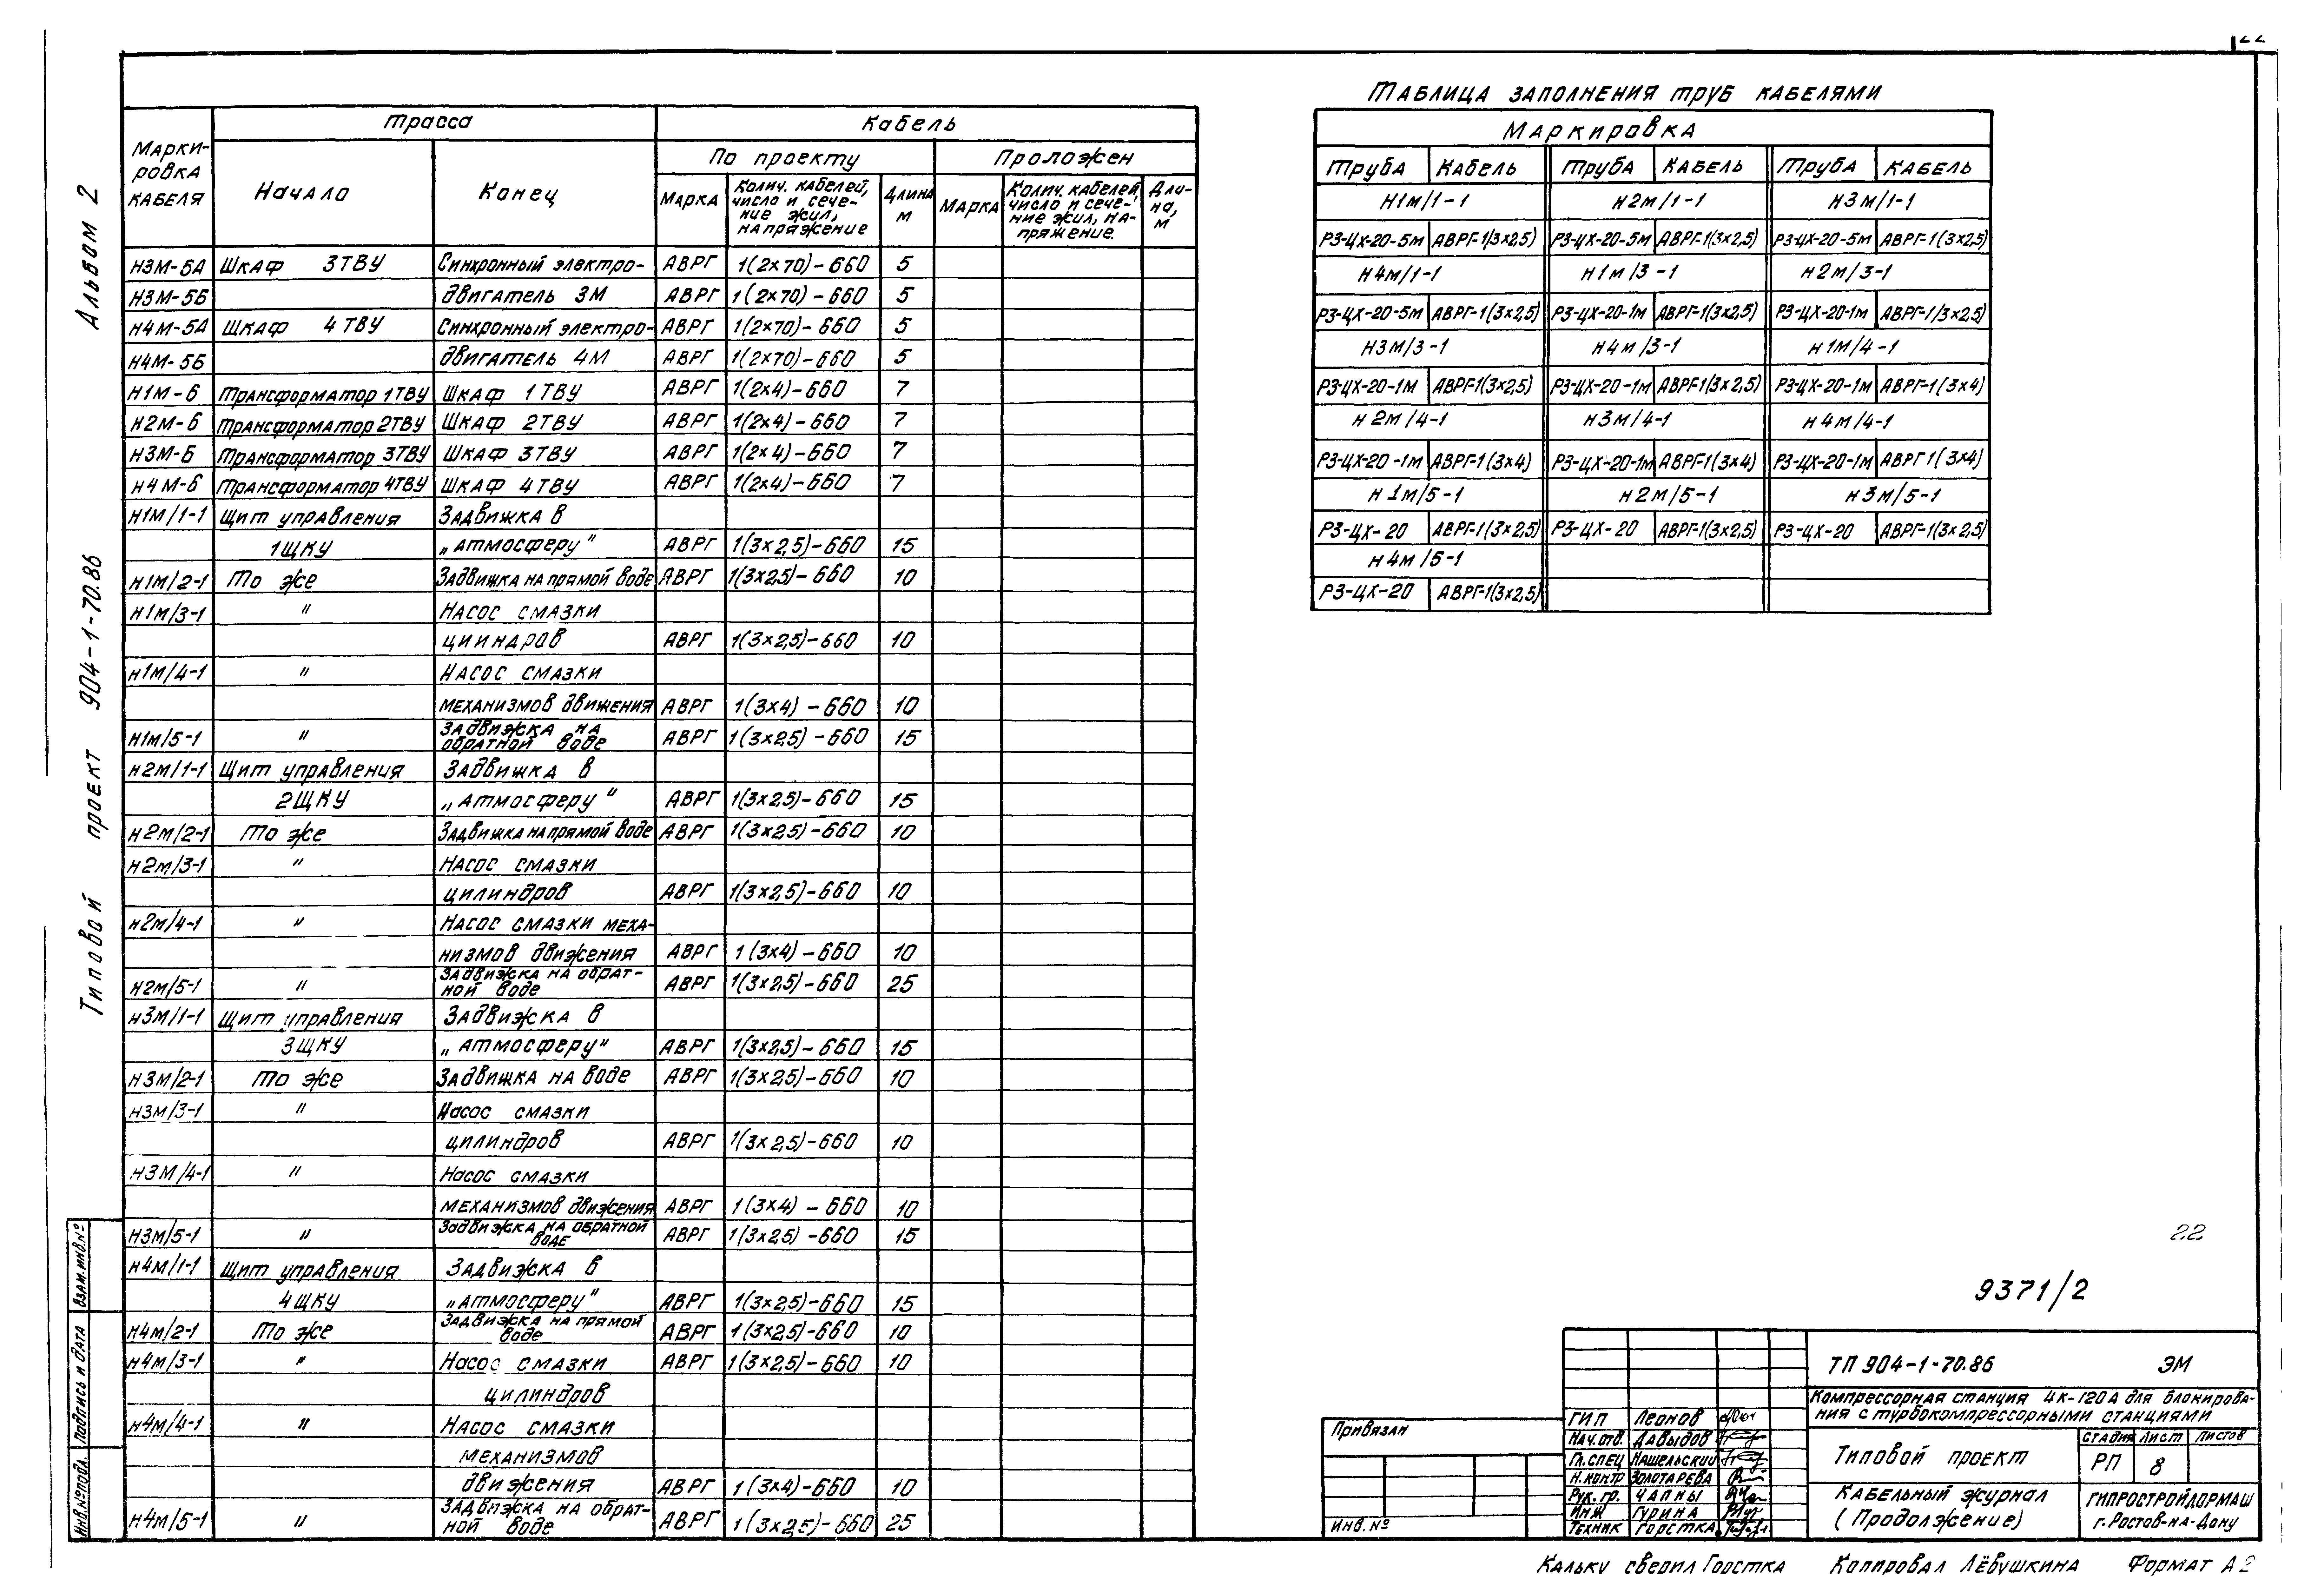 22
Альбом 2
Типовой проект 904-1-70.86
Марки-
ровка
кабеля
Трасса
Кабель
Начало
Конец
По проекту
Проложен
Марка
Колич. кабелей,
число и сече-
ние жил,
напряжение
Длина
м
Марка
Колич. кабелей,
число и сече-
ние жил, на-
пряжение.
Дли-
на,
м
Н3М-5А Шкаф 3ТВУ Синхронный электро- АВРГ 1(2×70)-660 5
Н3М-5Б двигатель 3М АВРГ 1(2×70)-660 5
Н4М-5А Шкаф 4ТВУ Синхронный электро- АВРГ 1(2×70)-660 5
Н4М-5Б двигатель 4М АВРГ 1(2×70)-660 5
Н1М-6 Трансформатор 1ТВУ Шкаф 1ТВУ АВРГ 1(2×4)-660 7
Н2М-6 Трансформатор 2ТВУ Шкаф 2ТВУ АВРГ 1(2×4)-660 7
Н3М-Б Трансформатор 3ТВУ Шкаф 3ТВУ АВРГ 1(2×4)-660 7
Н4М-6 Трансформатор 4ТВУ Шкаф 4ТВУ АВРГ 1(2×4)-660 7
Н1М/1-1 Щит управления Задвижка в
1ЩКУ „Атмосферу" АВРГ 1(3×2,5)-660 15
Н1М/2-1 То же Задвижка на прямой воде АВРГ 1(3×2,5)-660 10
Н1М/3-1 " Насос смазки
циindров АВРГ 1(3×2,5)-660 10
Н1М/4-1 " Насос смазки
механизмов движения АВРГ 1(3×4)-660 10
Н1М/5-1 " Задвижка на
обратной воде АВРГ 1(3×2,5)-660 15
Н2М/1-1 Щит управления Задвижка в
2ЩКУ „Атмосферу" АВРГ 1(3×2,5)-660 15
Н2М/2-1 То же Задвижка на прямой воде АВРГ 1(3×2,5)-660 10
Н2М/3-1 " Насос смазки
цилиндров АВРГ 1(3×2,5)-660 10
Н2М/4-1 " Насос смазки меха-
низмов движения АВРГ 1(3×4)-660 10
Н2М/5-1 " Задвижка на обрат-
ной воде АВРГ 1(3×2,5)-660 25
Н3М/1-1 Щит управления Задвижка в
3ЩКУ „Атмосферу" АВРГ 1(3×2,5)-660 15
Н3М/2-1 То же Задвижка на воде АВРГ 1(3×2,5)-660 10
Н3М/3-1 " Насос смазки
цилиндров АВРГ 1(3×2,5)-660 10
Н3М/4-1 " Насос смазки
механизмов движения АВРГ 1(3×4)-660 10
Н3М/5-1 " Задвижка на обратной
воде АВРГ 1(3×2,5)-660 15
Н4М/1-1 Щит управления Задвижка в
4ЩКУ „Атмосферу" АВРГ 1(3×2,5)-660 15
Н4М/2-1 То же Задвижка на прямой
воде АВРГ 1(3×2,5)-660 10
Н4М/3-1 " Насос смазки АВРГ 1(3×2,5)-660 10
цилиндров
Н4М/4-1 " Насос смазки
механизмов
движения АВРГ 1(3×4)-660 10
Н4М/5-1 " Задвижка на обрат-
ной воде АВРГ 1(3×2,5)-660 25
Таблица заполнения труб кабелями
Маркировка
Труба Кабель Труба Кабель Труба Кабель
Н1М/1-1 Н2М/1-1 Н3М/1-1
РЗ-ЦХ-20-5м АВРГ-1(3×2,5) РЗ-ЦХ-20-5м АВРГ-1(3×2,5) РЗ-ЦХ-20-5м АВРГ-1(3×2,5)
Н4М/1-1 Н1М/3-1 Н2М/3-1
РЗ-ЦХ-20-5м АВРГ-1(3×2,5) РЗ-ЦХ-20-1м АВРГ-1(3×2,5) РЗ-ЦХ-20-1м АВРГ-1(3×2,5)
Н3М/3-1 Н4М/3-1 Н1М/4-1
РЗ-ЦХ-20-1м АВРГ-1(3×2,5) РЗ-ЦХ-20-1м АВРГ-1(3×2,5) РЗ-ЦХ-20-1м АВРГ-1(3×4)
Н2М/4-1 Н3М/4-1 Н4М/4-1
РЗ-ЦХ-20-1м АВРГ-1(3×4) РЗ-ЦХ-20-1м АВРГ-1(3×4) РЗ-ЦХ-20-1м АВРГ1(3×4)
Н1М/5-1 Н2М/5-1 Н3М/5-1
РЗ-ЦХ-20 АВРГ-1(3×2,5) РЗ-ЦХ-20 АВРГ-1(3×2,5) РЗ-ЦХ-20 АВРГ-1(3×2,5)
Н4М/5-1
РЗ-ЦХ-20 АВРГ-1(3×2,5)
22
9371/2
ТП 904-1-70.86 ЭМ
Компрессорная станция 4К-120А для блокирова-
ния с турбокомпрессорными станциями
Типовой проект
Стадия Лист Листов
РП 8
Кабельный журнал
(Продолжение)
ГИПРОСТРОЙДОРМАШ
г. Ростов-на-Дону
Привязан
Инв.№
ГИП Леонов
Нач.отд. Давыдов
Гл.спец Нашельский
Н.контр Золотарева
Рук.гр. Чапны
Инж Гурина
Техник Горстка
Взам.инв.№
Подпись и дата
Инв.№подл.
Кальку сверил Горстка Копировал Лёвушкина Формат А2